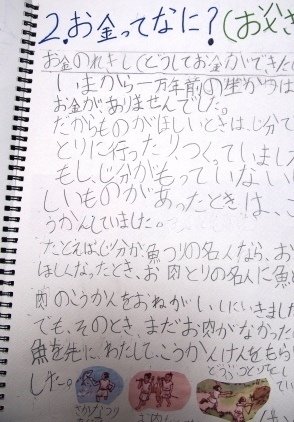 2.お金ってなに?(お父さ
お金のれきし(どうしてお金ができた
いまから一万年前の生かつは
お金がありませんでした。
だからものがほしいときは、じ分で
とりに行ったり、つくっていました
もし、じ分がもっていない
しいものがあったときは、こ
うかんしていました。
たとえばじ分が魚つりの名人なら、お
ほしくなったとき、お肉とりの名人に魚
肉のこうかんをおねがいしにいきました
でも、そのとき、まだお肉がなかった
魚を先に、わたして、こうかんけんをもら
した。
さかなつり
お肉
どうぶつとり